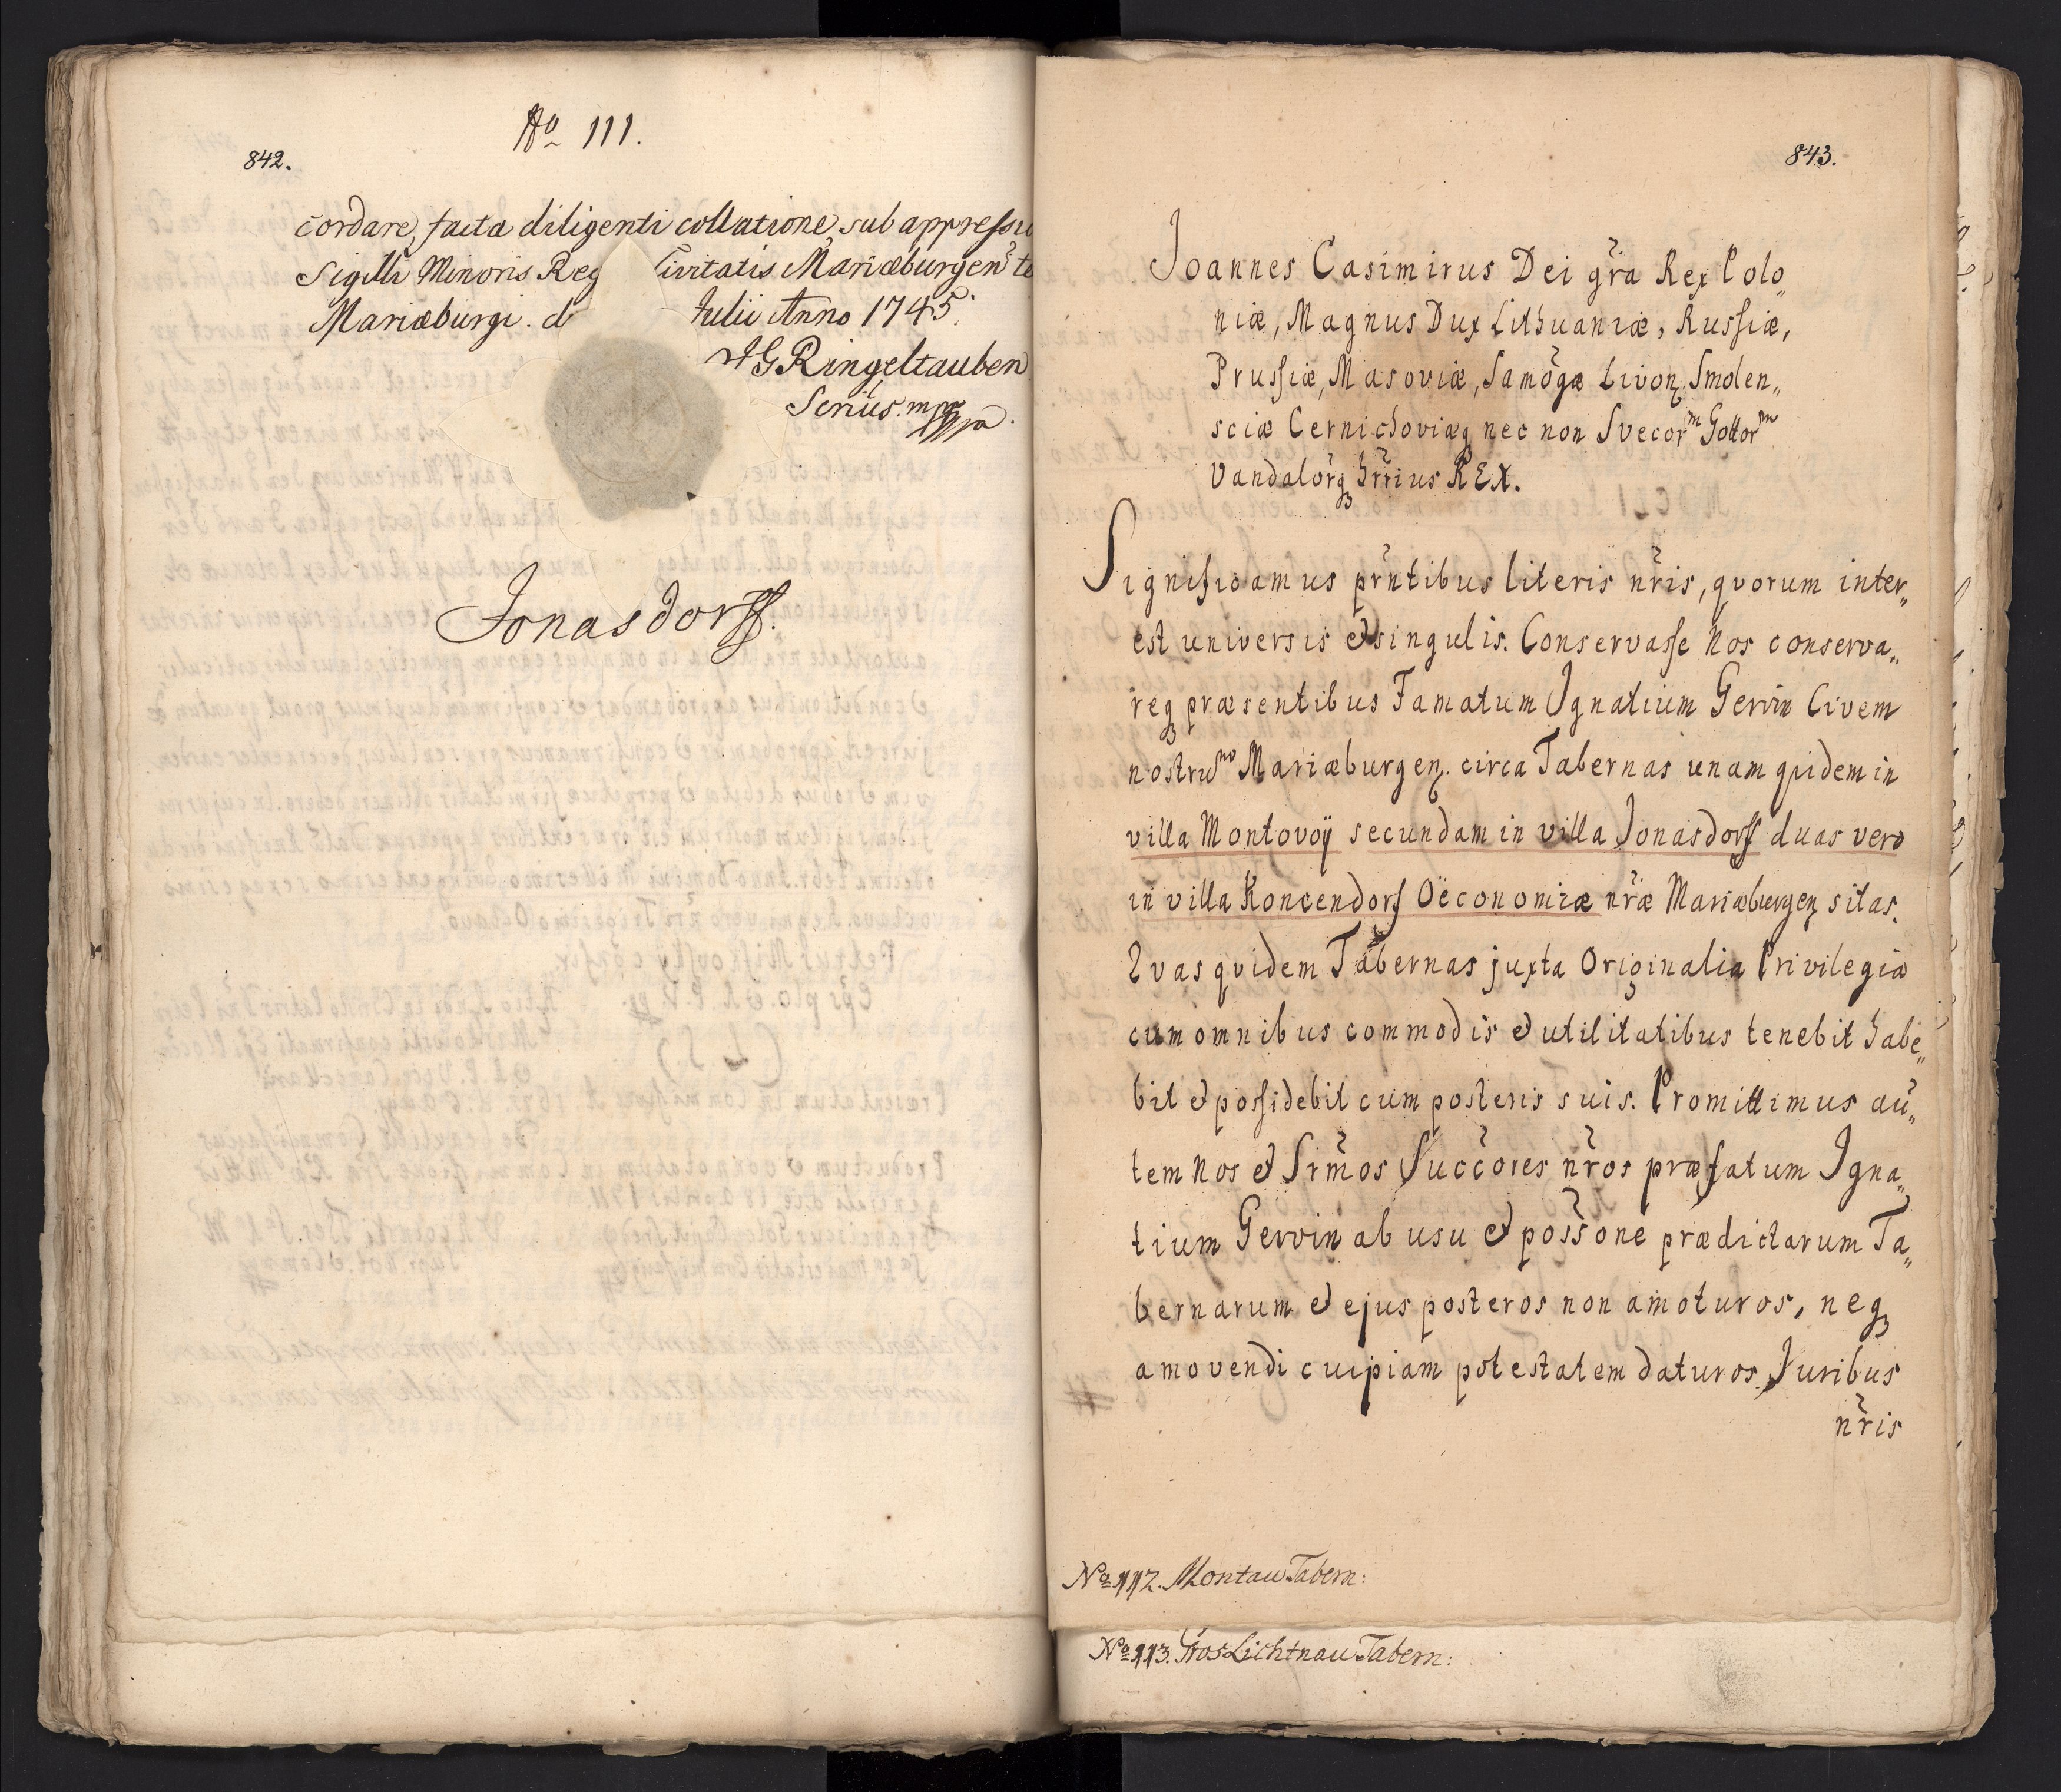 No 111.
842.
cordare, facta diligenti collatione, sub appressu
Sigilli Minoris Reg Civitatis Mariæburgen̄ te
Mariæburgi. d Julii Anno 1745.
J G Ringeltauben
Scrius. mpp
Jonasdorff.
843.
Joannes Casimirus Dei gr̃a Rex Polo„
niæ, Magnus Dux Lithuaniæ, Russiæ,
Prussiæ, Masoviæ, Samog̃æ Livoņ. Smolen„
sciæ Cernichoviæq nec non Svecorᵐ Gottorᵐ
Vandalor̃q hr̃rius REX.
Significamus pr̃ntibus literis nr̃is, qvorum inter„
est universis et singulis. Conservasse Nos conserva„
req præsentibus Famatum Ignatium Gervin Civem
nostruᵐ Mariæburgen. circa Tabernas unam qvidem in
villa Montovoÿ secundam in villa Jonasdorf duas vero
in villa Koncendorf Oëconomiæ nr̃æ Mariæburgen sitas.
Qvas qvidem Tabernas juxta Originalia Privilegia
cum omnibus commodis et utilitatibus tenebit habe„
bit et possidebit cum posteris suis. Promittimus au„
tem Nos et Srm̃os Succ̃ores nr̃os præfatum Igna„
tium Gervin ab usu et poss̃one prædictarum Ta„
bernarum et ejus posteros non amoturos, neq
amovendi cuipiam potestatem daturos Juribus
nr̃is
No 112. Montau Tabern:
No 113. Gros Lichtnau Tabern: